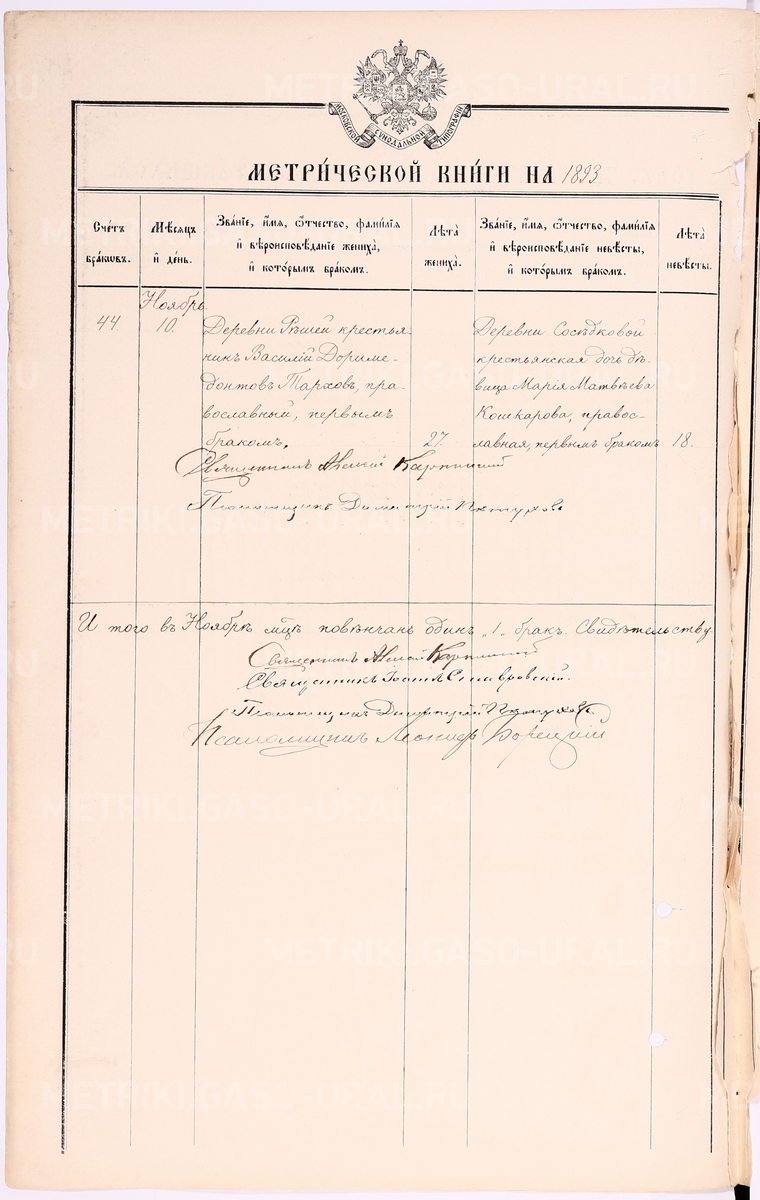 METRIKI.GASO-URAL.RU
МОСКОВСКОЙ СѴНОДАЛЬНОЙ ТИПОГРАФІИ
МЕТРИ́ЧЕСКОЙ КНИ́ГИ НА 1893
Сче́тъ бра́кѡвъ.
Мѣ́сяцъ и҆ де́нь.
Зва́нїе, и҆́мя, ѻ҆́тчество, фами́лїя и҆ вѣроисповѣ́данїе жениха̀, и҆ кото́рымъ бра́комъ.
Лѣта̀ жениха̀.
Зва́нїе, и҆́мя, ѻ҆́тчество, фами́лїя и҆ вѣроисповѣ́данїе невѣ́сты, и҆ кото́рымъ бра́комъ.
Лѣта̀ невѣ́сты.
44.
Ноябрь
10.
Деревни Рѣшей крестья-
нинъ Василій Дориме-
донтовъ Тарховъ, пра-
вославный, первымъ
бракомъ.
27.
Деревни Сосѣдковой
крестьянская дочь дѣ-
вица Марія Матвѣева
Кошкарова, правос-
лавная, первымъ бракомъ
18.
Священникъ Алексій
Псаломщикъ Димитрій Пѣтуховъ
И того въ Ноябрѣ мцѣ повѣнчанъ одинъ „1„ бракъ. Свидѣтельству
Священникъ Алексій
Священникъ Іоаннъ Ставровскій.
Псаломщикъ Димитрій Пѣтуховъ.
Псаломщикъ Леонидъ Борецкій